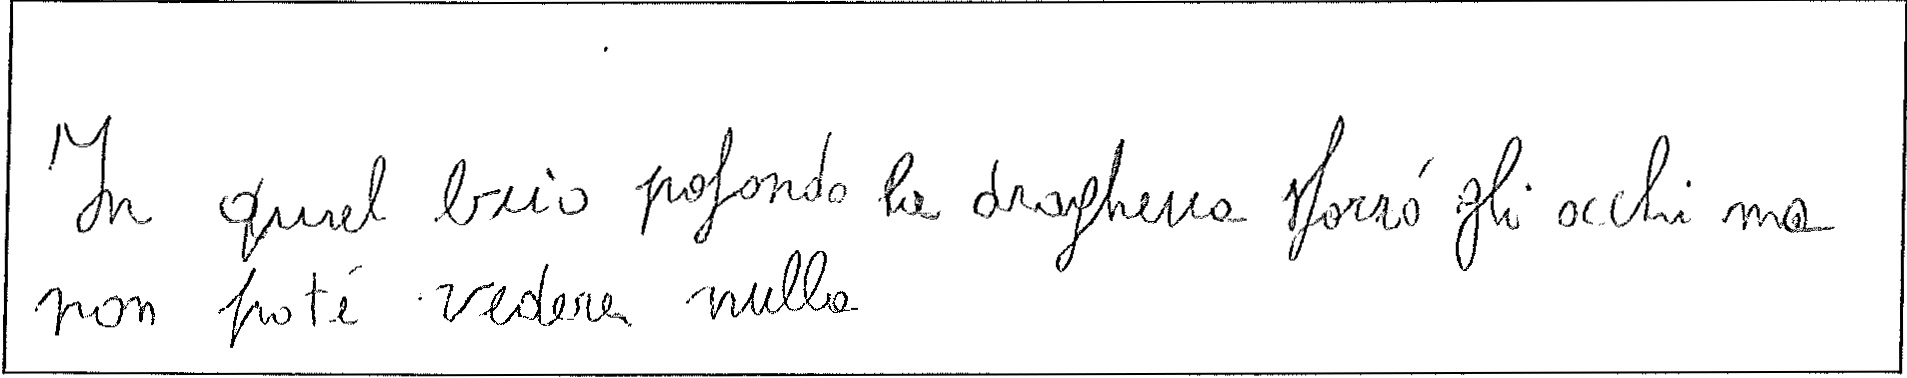 In quel buio pofondo la draghessa sforzó gli occhi ma
non poté vedere nulla